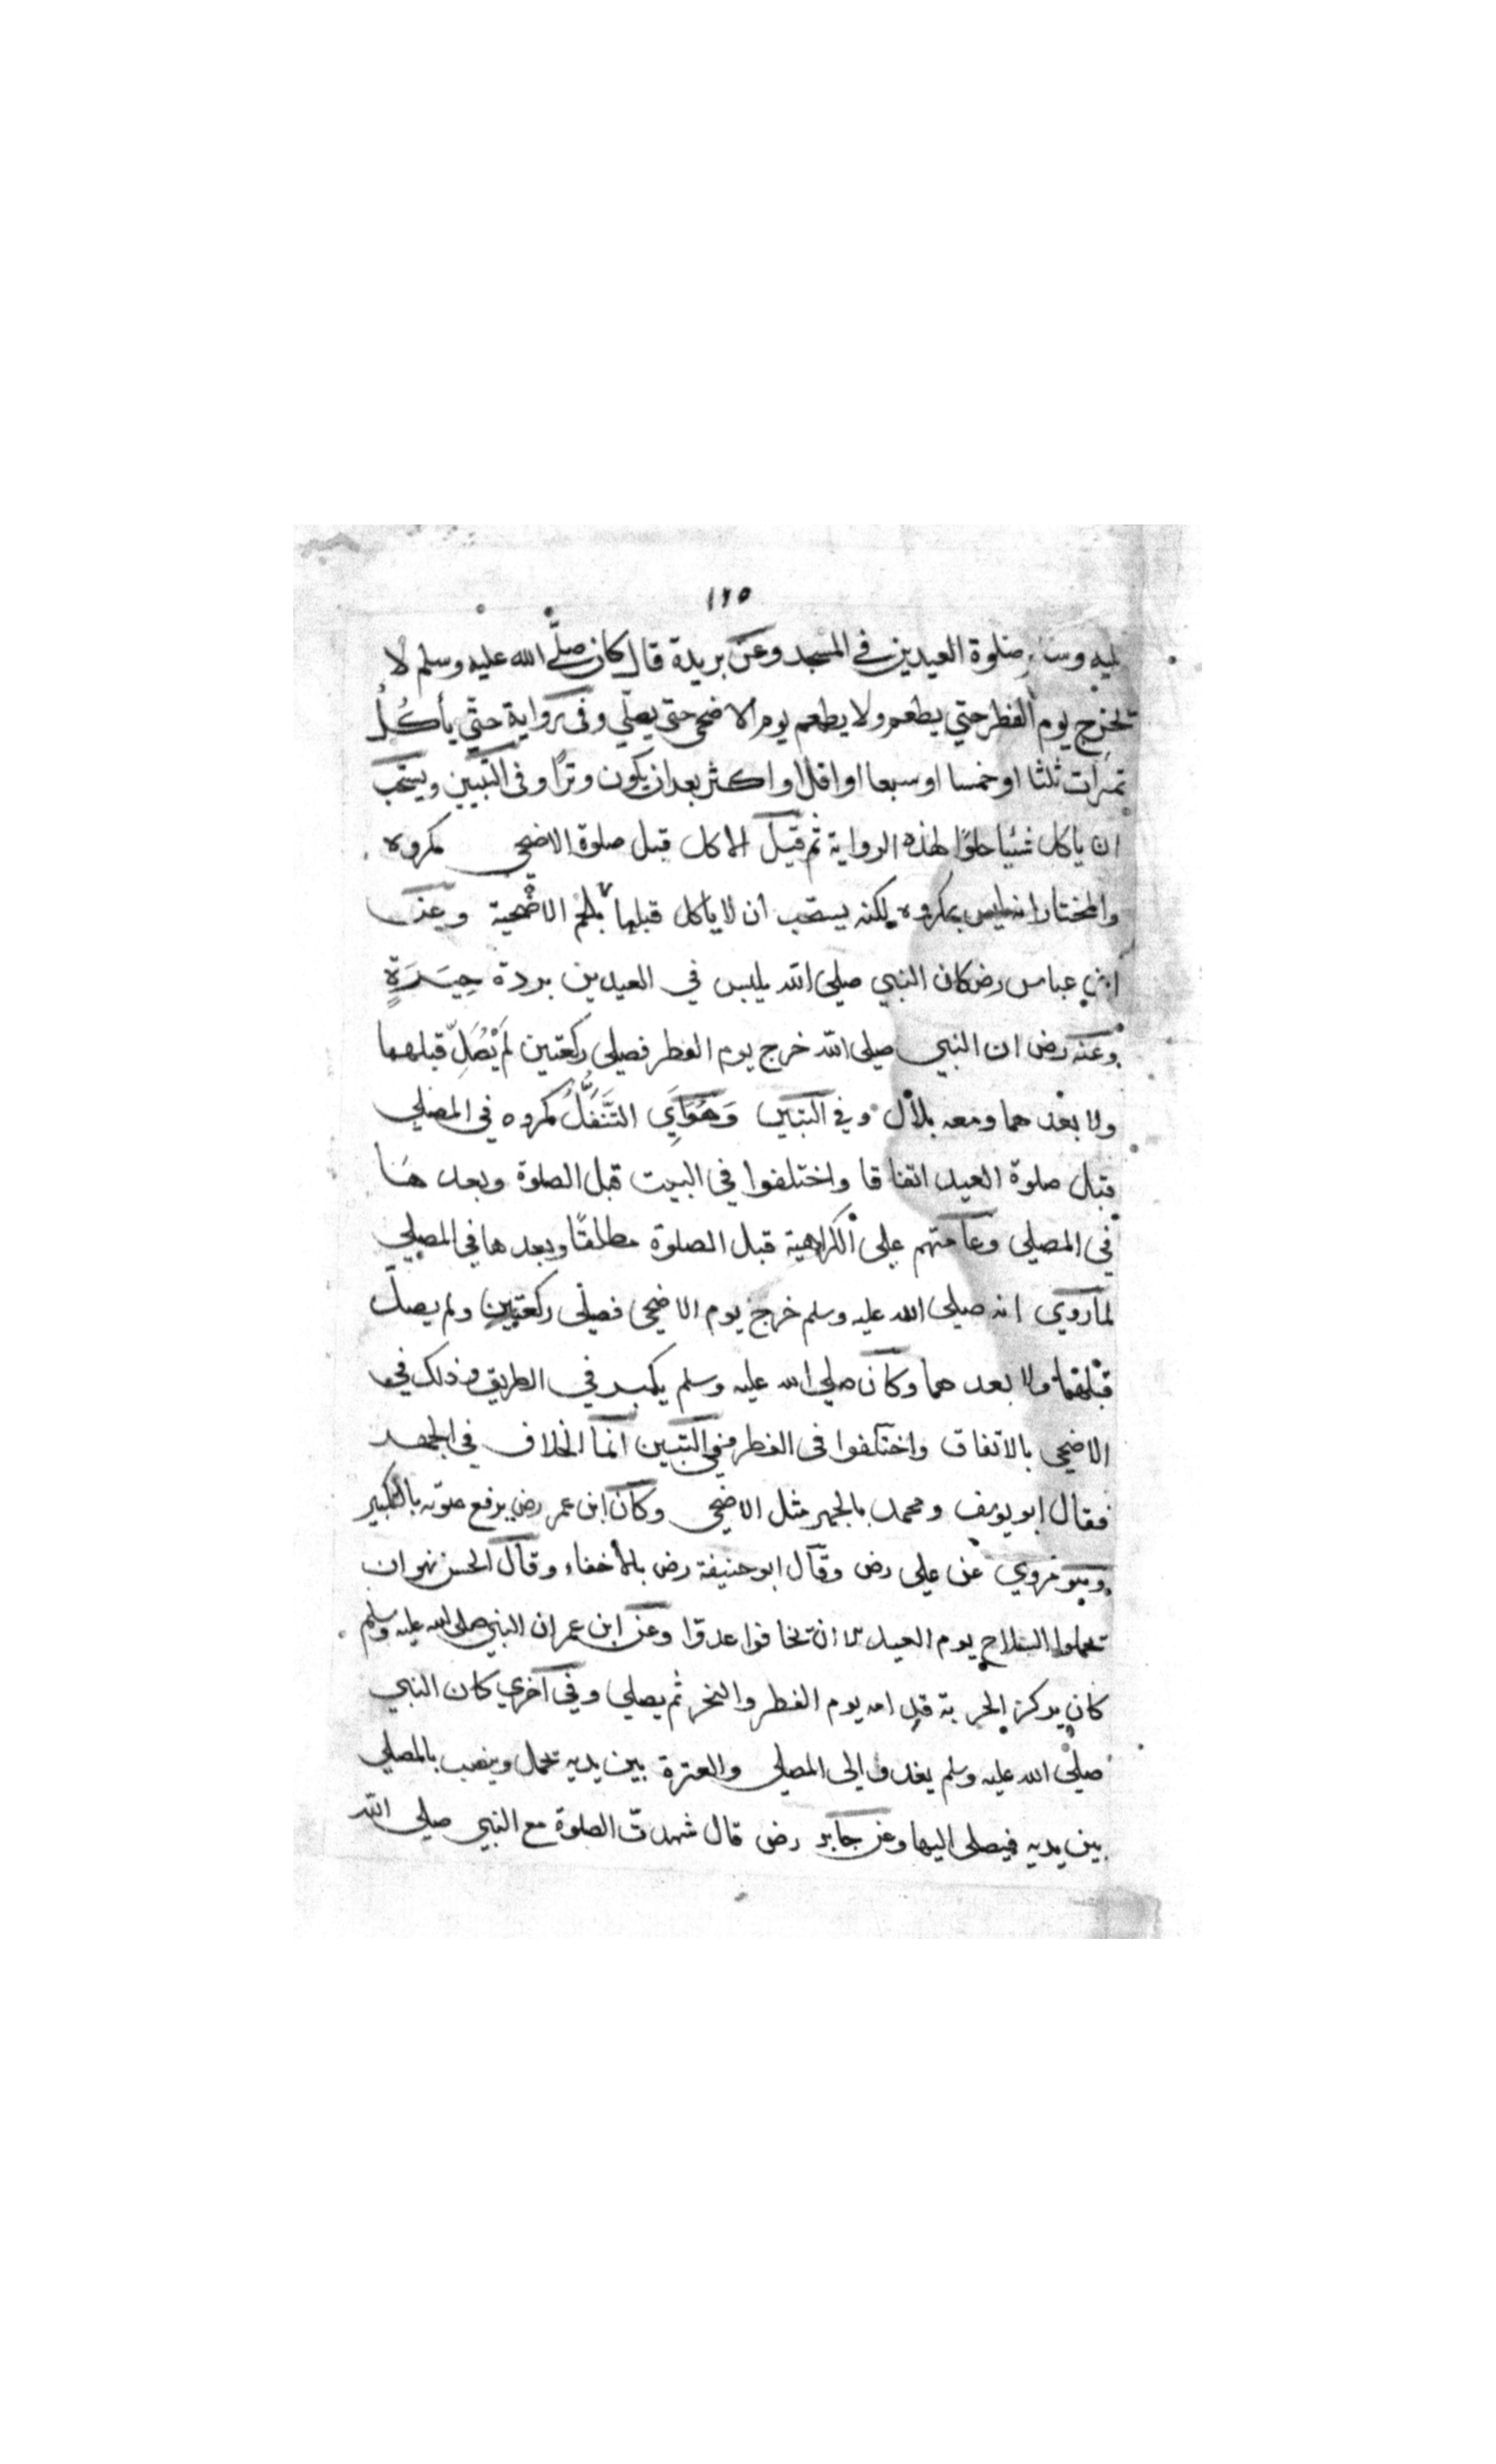 ١١٥
ليه وسلم صلوة العيدين في المسجد وعن بريدة قال كان صلى الله عليه وسلم لا
يخرج يوم الفطر حتي يطعم ولا يطعم يوم الاضحى حتى يصلي وفى رواية حتي يأكُلُ
تمرات ثلثا او خمسا او سبعا او اقل او اكثر بعد ان يكون وترًا وفى التبيين ويستحب
ان ياكل شئيا حلوًا لهذه الرواية ثم قيل الاكل قبل صلوة الاضحى مكروه
والمختار انه ليس بمكروه لكنه يستحب أن لا ياكل قبلها بلحم الاضحية وعن
ابن عباس رض كان النبي صلى الله يلبس في العيدين بردة حِبَرَةٍ
وعنه رض ان النبي صلى الله خرج يوم الفطر فصلى ركعتين لَمْ يُصَلِّ قبلهما
ولا بعد هما ومعه بلال وفي التبيين وَهُوَ اي التَّنَفُّلُ مكروه في المصلي
قبل صلوة العيد اتفاقا واختلفوا في البيت قبل الصلوة وبعد هَا
في المصلي وعامتهم على الكراهية قبل الصلوة مطلقًا وبعد ها في المصلي
لما روي انه صلى الله عليه وسلم خرج يوم الاضحى فصلى ركعتين ولم يصلّ
قبلهما ولا بعد هما وكان صلى الله عليه وسلم يكبر في الطريق وذلك في
الاضحى بالاتفاق واختلفوا فى الفطر ففي التبيين انما الخلاف في الجهر
فقال ابو يوسف ومحمد بالجهر مثل الاضحى وكان ابن عمر رض يرفع صوته بالتكبير
وهو مروي عن على رض وقال ابو حنيفة رض بالأخفاء وقال الحسن نهوا ان
تحملوا السلاح يوم العيد الا ان تخافوا عدوّا وعن ابن عمر ان النبي صلى الله عليه وسلم
كان يركز الحربة قد امه يوم الفطر والنحر ثم يصلي وفي أخري كان النبي
صلى الله عليه وسلم يغدو الى المصلى والعنزة بين يديه تحمل وينصب بالمصلي
بين يديه فيصلى اليها وعن جابر رض قال شهدت الصلوة مع النبي صلى الله